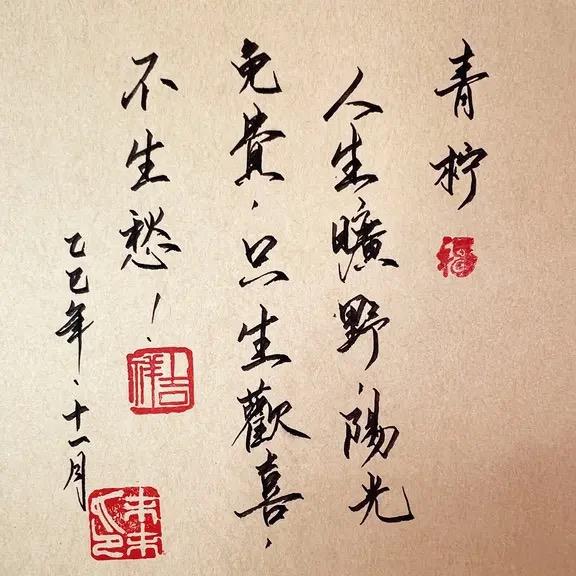 青柠
福
人生曠野，陽光
免費，只生歡喜，
不生愁！
吉祥
乙巳年．十一月